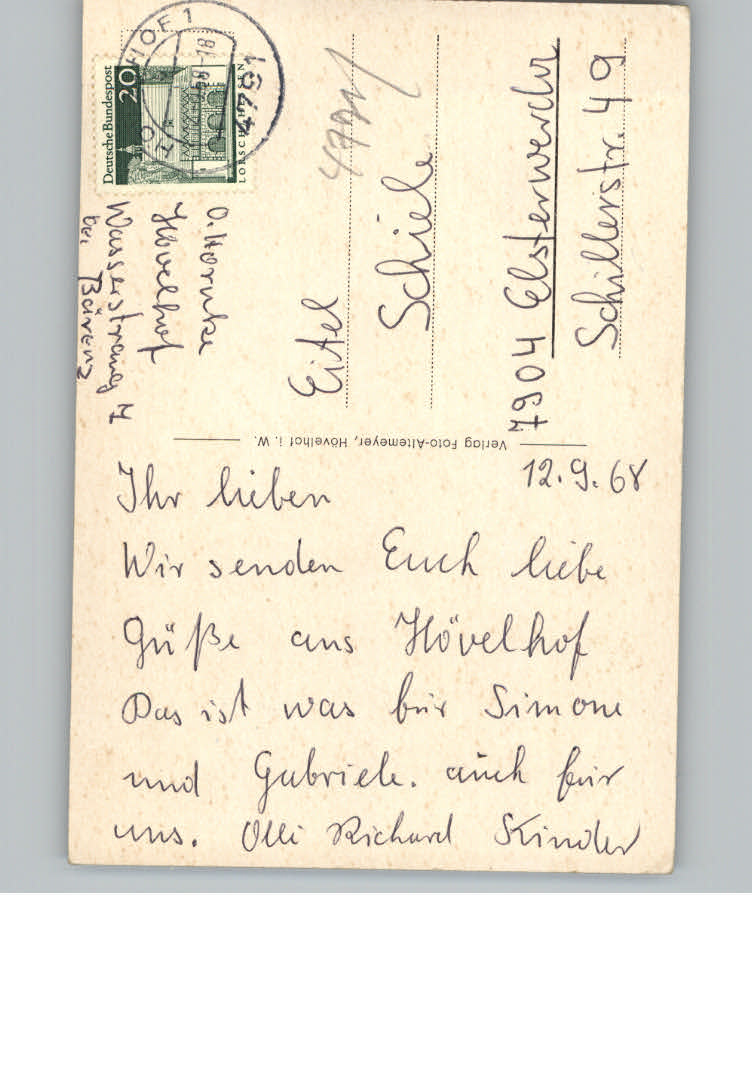 Deutsche Bundespost
20
LORSCH / HESSEN
4794
O. Hornke
Hövelhof
Wasserstraße 7
bei
Eitel
Schiele
7904 Elsterwerda
Schillerstr. 49
Verlag Foto-Altemeyer, Hövelhof i. W.
12.9.68
Ihr lieben
Wir senden Euch liebe
Güße aus Hövelhof
Das ist was für Simone
und Gabriele. auch für
uns. Olli Richard Kinder